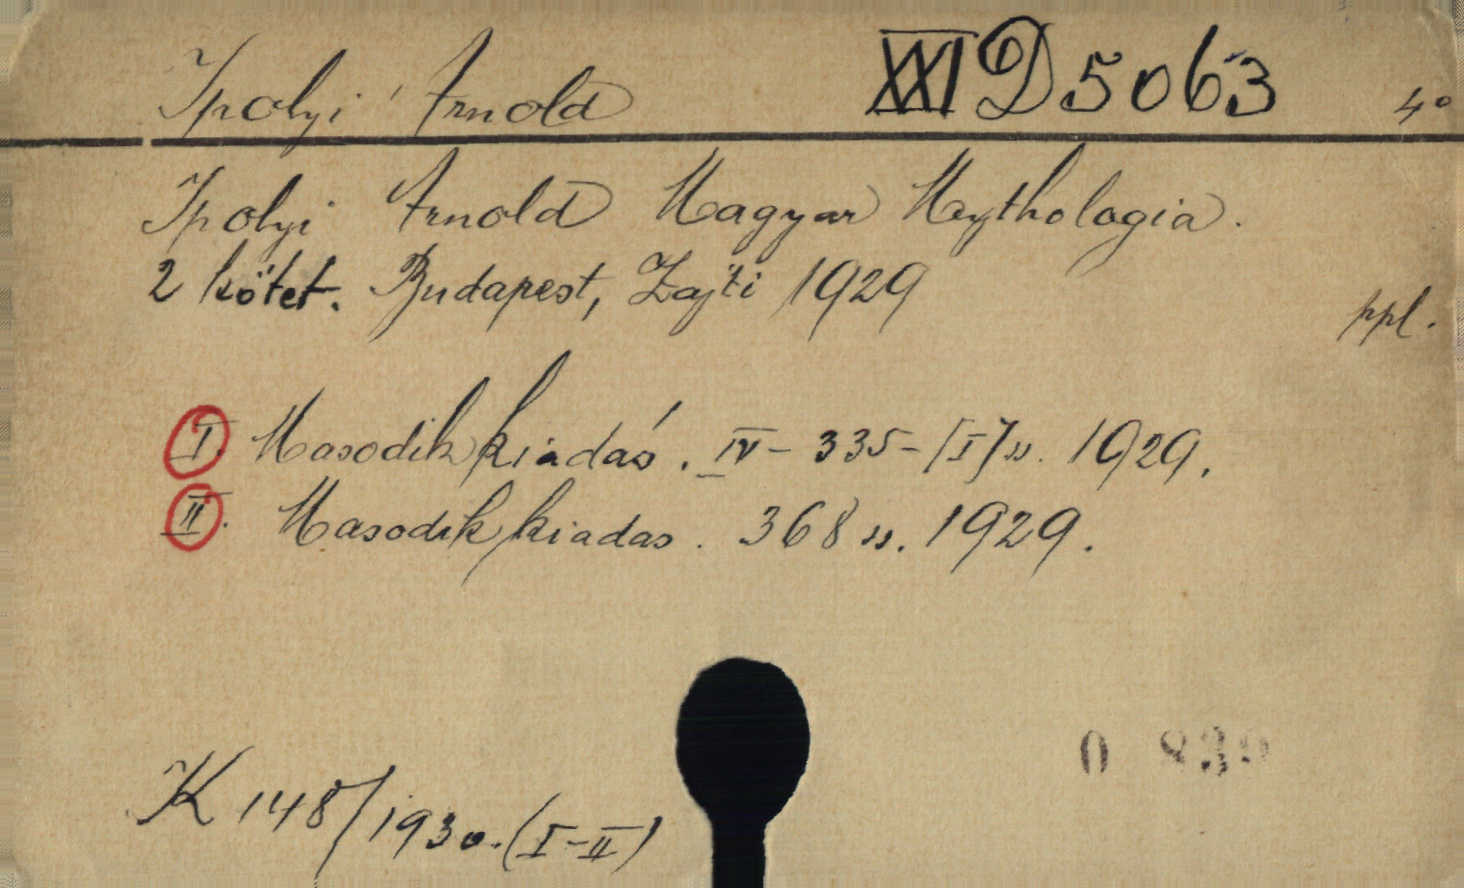 Ipolyi Arnold XXI D 5063 4°
Ipolyi Arnold Magyar Mythologia.
2 kötet. Budapest, Zajti 1929
ppl.
I. Masodik kiadás. IV - 335 - [I] ss. 1929.
II. Masodik kiadas. 368 ss. 1929.
0 839
K 148/1930. (I-II)